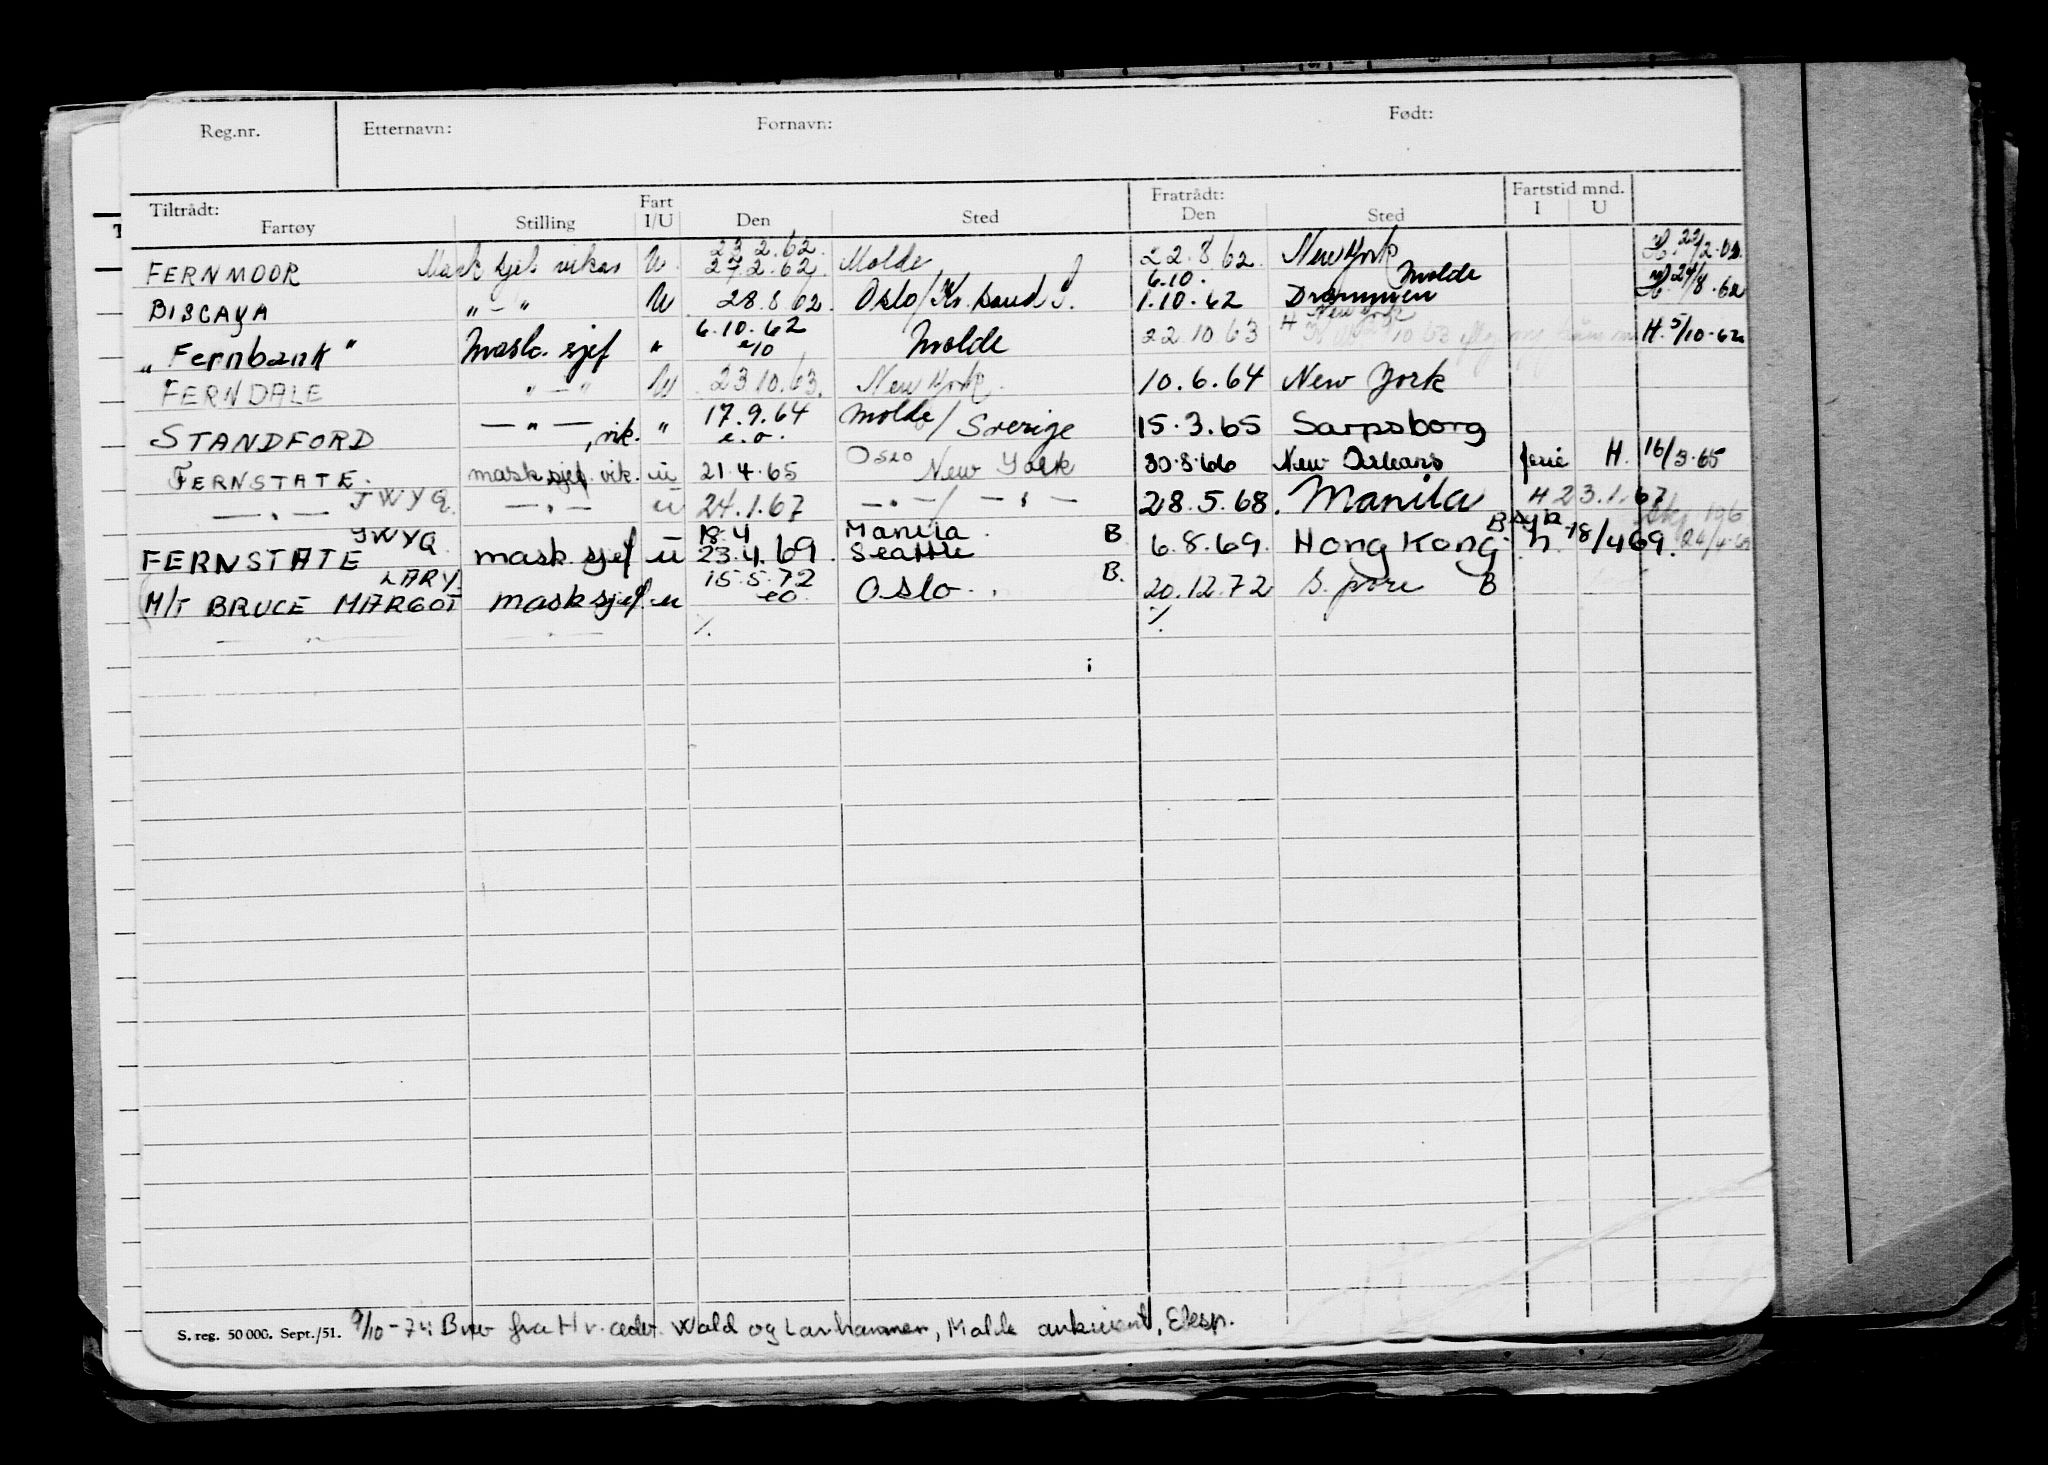 Reg.nr. Etternavn: Fornavn: Født:
Tiltrådt: Fratrådt: Fartstid mnd.
Fartøy Stilling Fart I/U Den Sted Den Sted I U
23.2.62
FERNMOOR Mask sjef vikar U. 27.2.62 Molde 22.8.62 New York H. 22/2.62
6.10. Molde
BISCAYA " - " U 28.8.62 Oslo/Kr.sund 1.10.62 Drammen H. 24/8.62
6.10.62 New York
„Fernbank" Mask. sjef " e/o Molde 22 10 63 H H. 5/10-62
FERNDALE " — " U 23 10.63. New York. 10.6.64 New York
17.9.64
STANDFORD — " — , vik. " e.o. Molde/Sverige 15.3.65 Sarpsborg
FERNSTATE. mask sjef. vik. u 21.4.65 Oslo New York 30.8.66 New Orleans ferie H. 16/3.65
— " — JWYQ. — " — u 24.1.67 — " — / — " — 28.5.68. Manila H 23.1.67
JWYQ 18.4 Manila B
FERNSTATE mask. sjef u 23.4.69 Seattle 6.8.69. Hong Kong. h. 18/4 69. 24/4.69
LARY 15.5.72 B.
M/T BRUCE MARGOT mask sjef. u eo Oslo. 20.12.72 S.pore B
— " — — " — %. %.
S. reg. 50 000. Sept./51. 9/10-74: Brev fra H.r. adv. Wald og Lanhammer, Molde arkivert, Eksp.